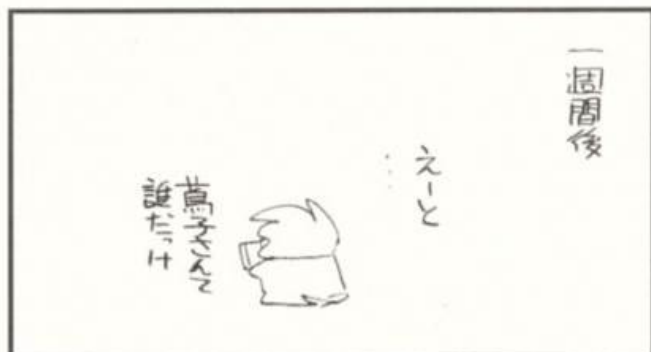 一週間後
えーと
…
蔦子さんて
誰だっけ